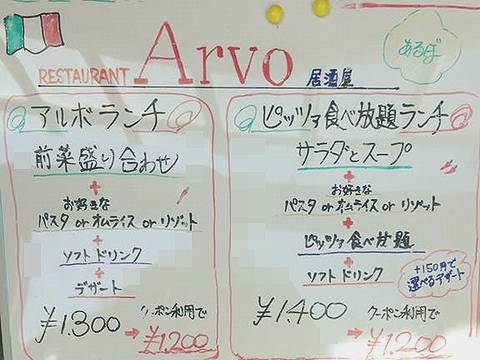 RESTAURANT Arvo 居酒屋
あるぼ
アルボランチ
前菜盛り合わせ
+
お好きな
パスタ or オムライス or リゾット
+
ソフトドリンク
+
デザート
¥1.300
クーポン利用で
→ ¥1.200
ピッツァ食べ放題ランチ
サラダとスープ
+
お好きな
パスタ or オムライス or リゾット
+
ピッツァ食べ放題
+
ソフトドリンク
+150円で
選べるデザート
¥1.400
クーポン利用で
→ ¥1.200